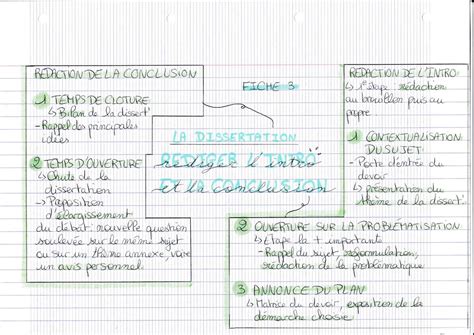 FICHE 3
LA DISSERTATION
REDIGER L'INTRO
rediger l'intro
ET LA CONCLUSION
REDACTION DE L'INTRO
↳ 1° étape rédaction
au brouillon puis au
propre
1 CONTEXTUALISATION
DU SUJET
- Porte d'entrée du
devoir
↳ présentation du
thème de la dissert°
2 OUVERTURE SUR LA PROBLÉMATISATION
↳ Etape la + importante
- Rappel du sujet, reformulation,
rédaction de la problématique
3 ANNONCE DU PLAN
- Matrice du devoir, exposition de la
démarche choisie
REDACTION DE LA CONCLUSION
1 TEMPS DE CLOTURE
↳ Bilan de la dissert°
- Rappel des principales
idées
2 TEMPS D'OUVERTURE
↳ Chute de la
dissertation
→ Proposition
d'élargissement
du débat: nouvelle question
soulevée sur le même sujet
ou sur un thème annexe, voire
un avis personnel.